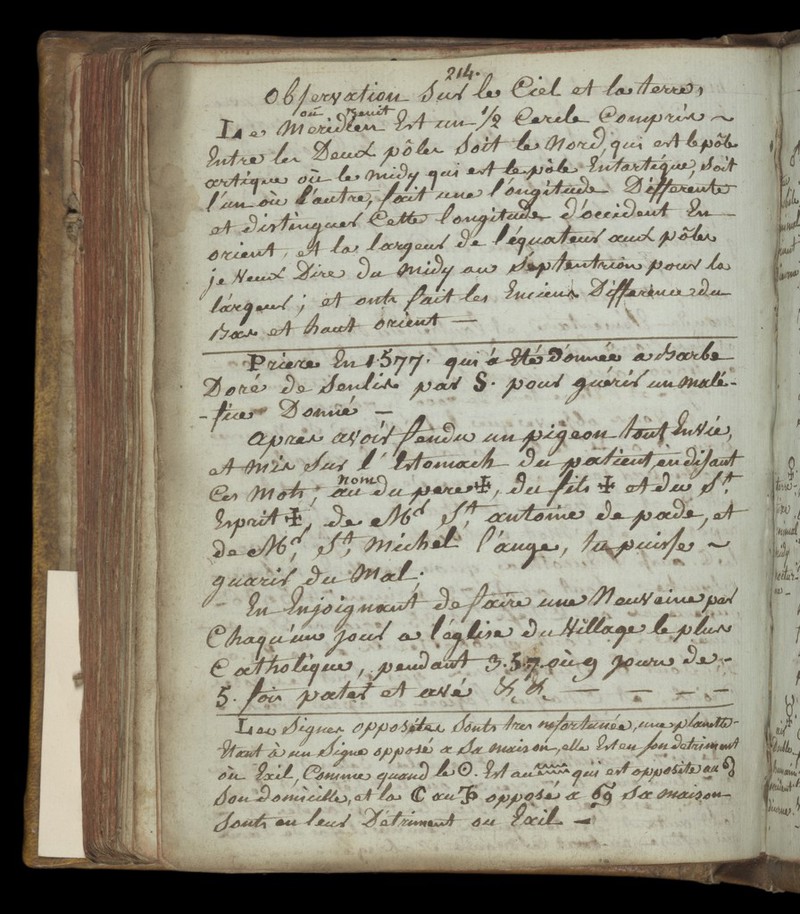 214.
Observation sur le Ciel et la terre,
où Zenit
Le Meridien Est un 1/2 Cercle Compris ~
Entre les Deux pôles soit le Nord, qui est le pôle
artique où le midy qui est le pôle Entartique, soit
l'un où l'autre, fait une longitude Différente
et distingues Cette longitude d'occident En
orient, et la largeur de l'équateur aux pôles
je Veux Dire du midy au septentrion pour la
largeur; et onts fait les Enciens Différence du
Bas et haut orient —
Priere En 1577. qui à Eté donnée a Barbe
Doré de Senlis par S. pour guérir un malé-
-fice Donné —
apres avoir fendu un pigeon tout En vie,
et mis sur l'Estomach du patient, en disant
Ces Mots; au nom du pere ✠, du fils ✠ et du St.
Esprit ✠, de Mr. St. antoine de pade, et
de Mr. St. Michel l'ange, tu puisse ~
guarir du Mal;
En Enjoignant de faire une Neuvaine par
Chaqu'un jour a l'église du Village le plus
Catholique, pendant 3.5.7. où 9 jours de -
5. fois pater et avé &. &. — — — —
Les signes opposites sonts tres infortunée, une planette
Etant à un Signe opposé a Sa maison, elle Est en son detriment
où Exil, Comme quand le ☉. Est au ♒ qui est opposite au ♌
Son domicille, et la ☾ au ♑ opposé à ♋ Sa maison
Sonts en leur Détriment ou Exil —